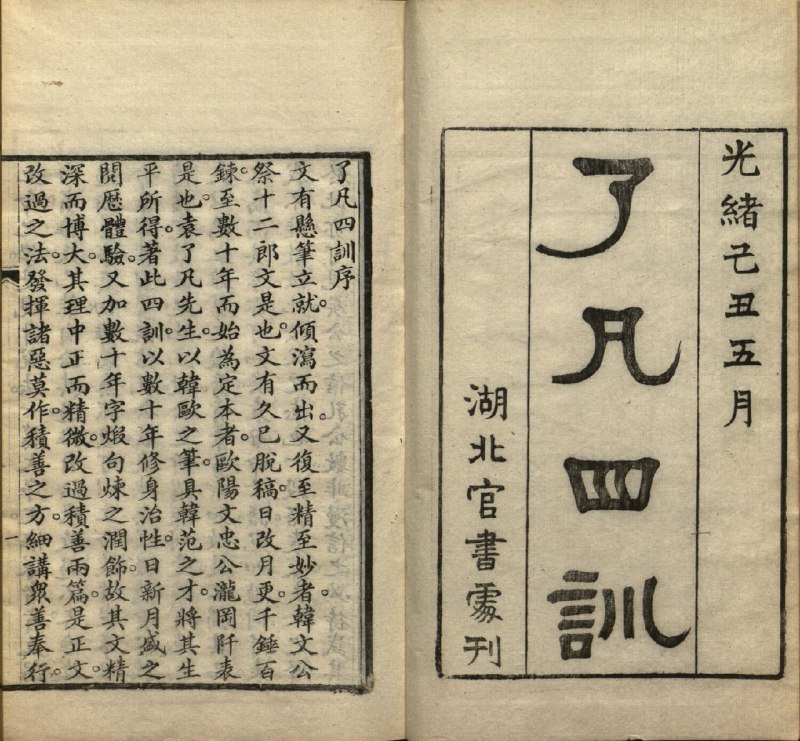 光緒己丑五月
了凡四訓
湖北官書處刊
了凡四訓序
文有懸筆立就。傾瀉而出。又復至精至妙者。韓文公
祭十二郎文是也。文有久已脫稿。日改月更。千錘百
鍊。至數十年而始為定本者。歐陽文忠公瀧岡阡表
是也。袁了凡先生。以韓歐之筆。具韓范之才。將其生
平所得。著此四訓。以數十年修身治性。日新月盛之
閱歷體驗。又加數十年字煅句煉之潤飾。故其文精
深而博大。其理中正而精微。改過積善兩篇。是正文
改過之法。發揮諸惡莫作。積善之方。細講衆善奉行。
一